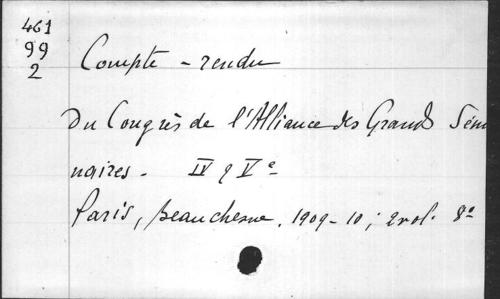 461
99
2
Compte-rendu
Du Congrès de l'Alliance des Grands Sémi
naires. IV & Ve
Paris, Beauchesne. 1909-10; 2 vol. 8o